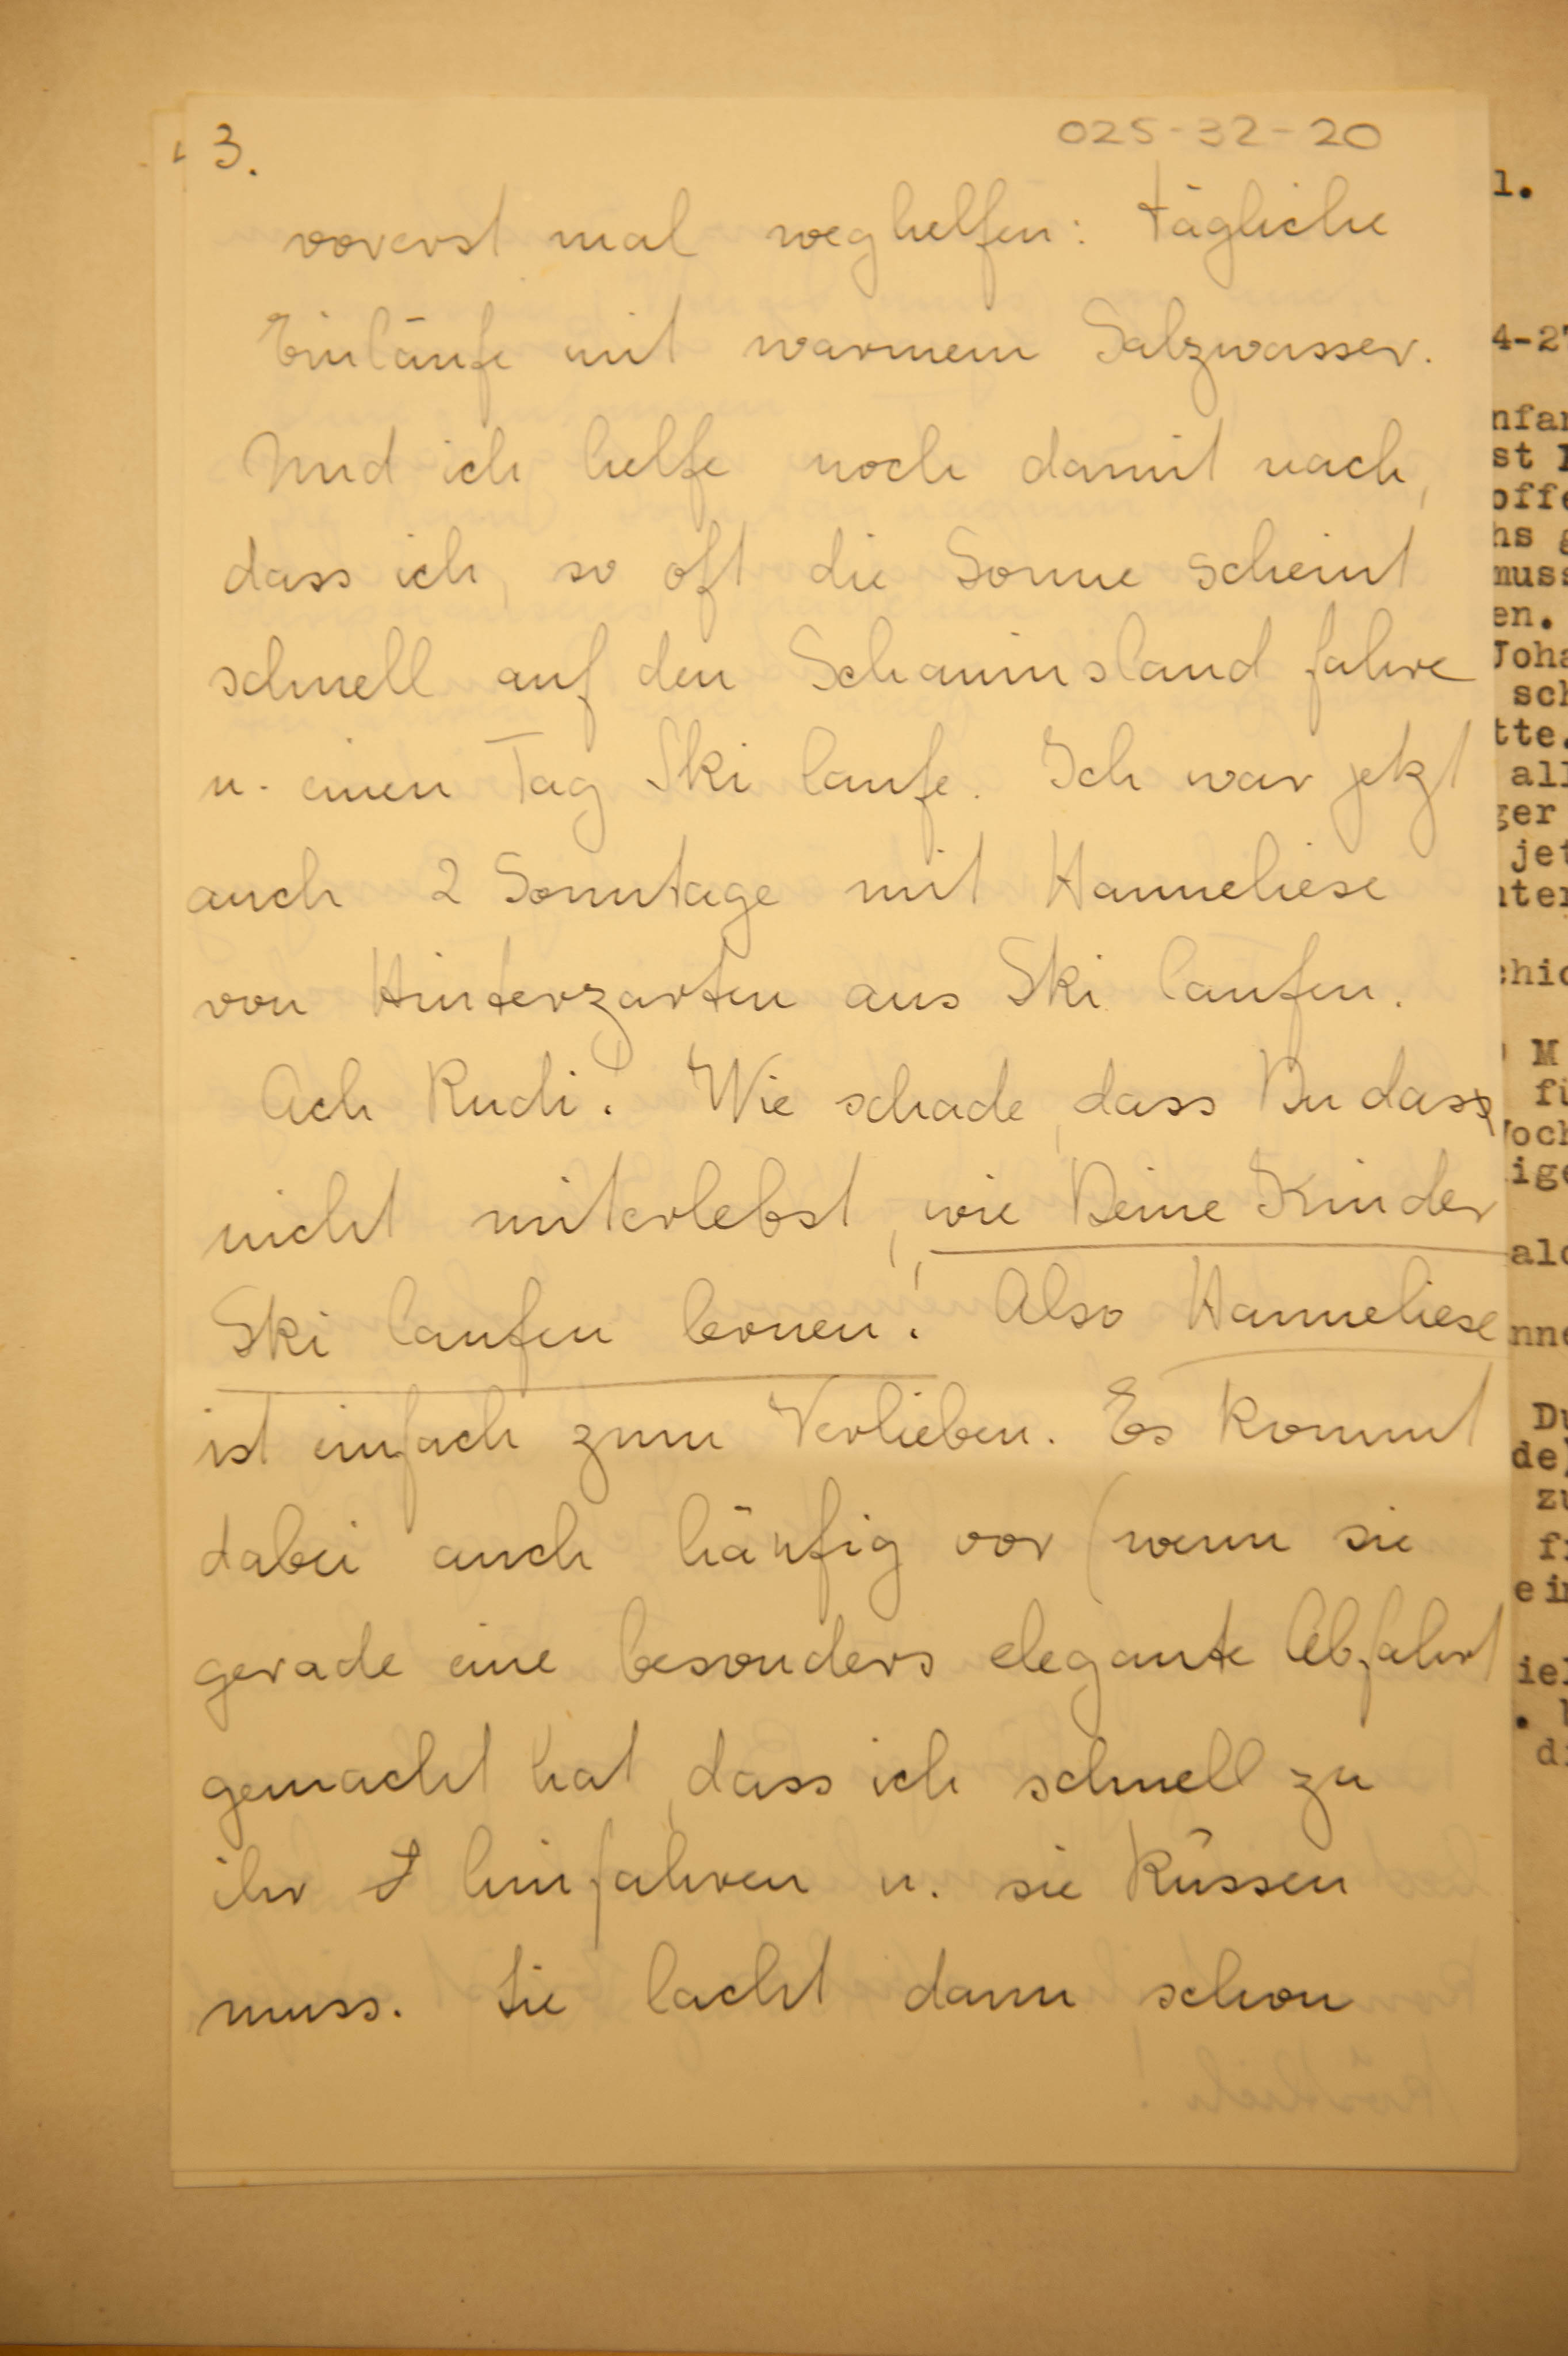 3.
025-32-20
vorerst mal weghelfen: tägliche
Einläufe mit warmem Salzwasser.
Und ich helfe noch damit nach,
dass ich, so oft die Sonne scheint
schnell auf den Schauinsland fahre
u. einen Tag Ski laufe. Ich war jetzt
auch 2 Sonntage mit Hanneliese
von Hinterzarten aus Ski laufen.
Ach Rudi! Wie schade, dass Du dass
nicht miterlebst, wie Deine Kinder
Ski laufen lernen! Also Hanneliese
ist einfach zum Verlieben. Es kommt
dabei auch häufig vor (wenn sie
gerade eine besonders elegante Abfahrt
gemacht hat, dass ich schnell zu
ihr hinfahren u. sie küssen
muss. Sie lacht dann schon
1.
4-2
nfan
st
offe
hs g
muss
en.
Joha
sch
tte.
all
ger
jet
nter
chic
M
fü
Woch
ige
alc
nne
Du
de)
zu
fr
ein
iel
di